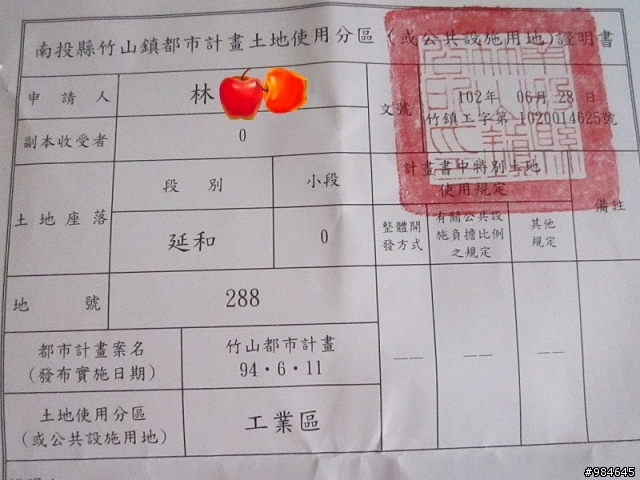 南投縣竹山鎮都市計畫土地使用分區(或公共設施用地)證明書
申請人
林
文號
102年 06月 28 日
竹鎮工字第 1020014625號
副本收受者
0
土地座落
段別
小段
延和
0
計畫書中特別土地
使用規定
備註
整體開
發方式
有關公共設
施負擔比例
之規定
其他
規定
地號
288
都市計畫案名
(發布實施日期)
竹山都市計畫
94·6·11
——
——
——
土地使用分區
(或公共設施用地)
工業區
#984645